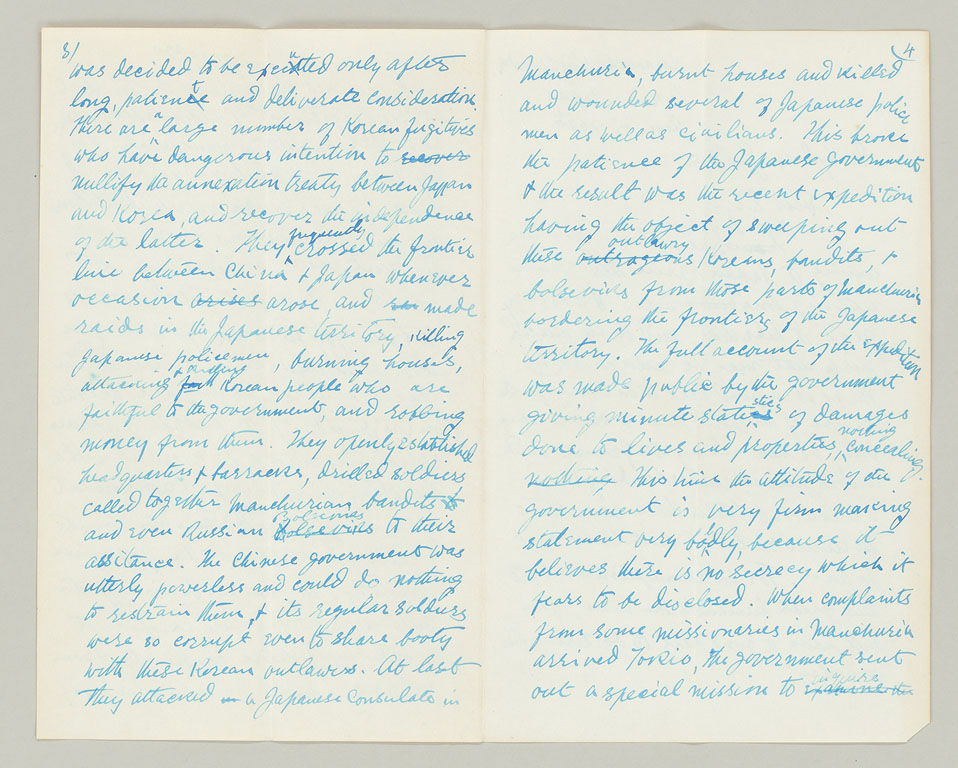 3/
was decided to be executed only after
long, patient and deliberate consideration.
There are a large number of Korean fugitives
who have dangerous intention to recover
nullify the annexation treaty between Japan
and Korea, and recover the independence
of the latter. They frequently crossed the frontier
line between China & Japan whenever
occasion arises arose, and ran made
raids in the Japanese territory, killing
Japanese policemen, burning houses,
attacking & Korean people who are
faithful to the government, and robbing
money from them. They openly established
headquarters & barracks, drilled soldiers
called together Manchurian bandits &
and even Russian Bolsevikes to their
assitance. The Chinese government was
utterly powerless and could do nothing
to restrain them, & its regular soldiers
were so corrupt even to share booty
with these Korean outlaws. At last
they attacked a Japanese consulate in
4
Manchuria, burnt houses and killed
and wounded several of Japanese police
men as well as civilians. This broke
the patience of the Japanese government
& the result was the recent expedition
having the object of sweeping out
these outrageous outlawry Koreans, bandits, &
bolseviks from those parts of Manchuria
bordering the frontiers of the Japanese
territory. The full account of the expedition
was made public by the government
giving minute statistics of damages
done to lives and properties, nothing concealing.
nothing This time the attitude of the
government is very firm making
statement very boldly, because it
believes there is no secrecy which it
fears to be disclosed. When complaints
from some missionaries in Manchuria
arrived Tokio, the government sent
out a special mission to examine the inquire